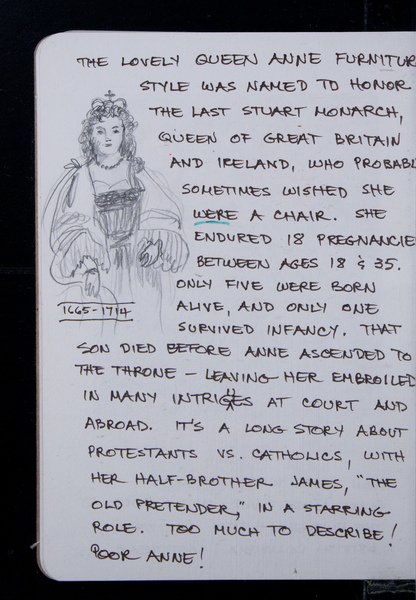 THE LOVELY QUEEN ANNE FURNITUR
STYLE WAS NAMED TO HONOR
THE LAST STUART MONARCH,
QUEEN OF GREAT BRITAIN
AND IRELAND, WHO PROBABL
SOMETIMES WISHED SHE
WERE A CHAIR. SHE
ENDURED 18 PREGNANCIE
BETWEEN AGES 18 & 35.
ONLY FIVE WERE BORN
1665-1714
ALIVE, AND ONLY ONE
SURVIVED INFANCY. THAT
SON DIED BEFORE ANNE ASCENDED TO
THE THRONE – LEAVING HER EMBROILED
IN MANY INTRIGUES AT COURT AND
ABROAD. IT'S A LONG STORY ABOUT
PROTESTANTS VS. CATHOLICS, WITH
HER HALF-BROTHER JAMES, "THE
OLD PRETENDER," IN A STARRING
ROLE. TOO MUCH TO DESCRIBE!
POOR ANNE!